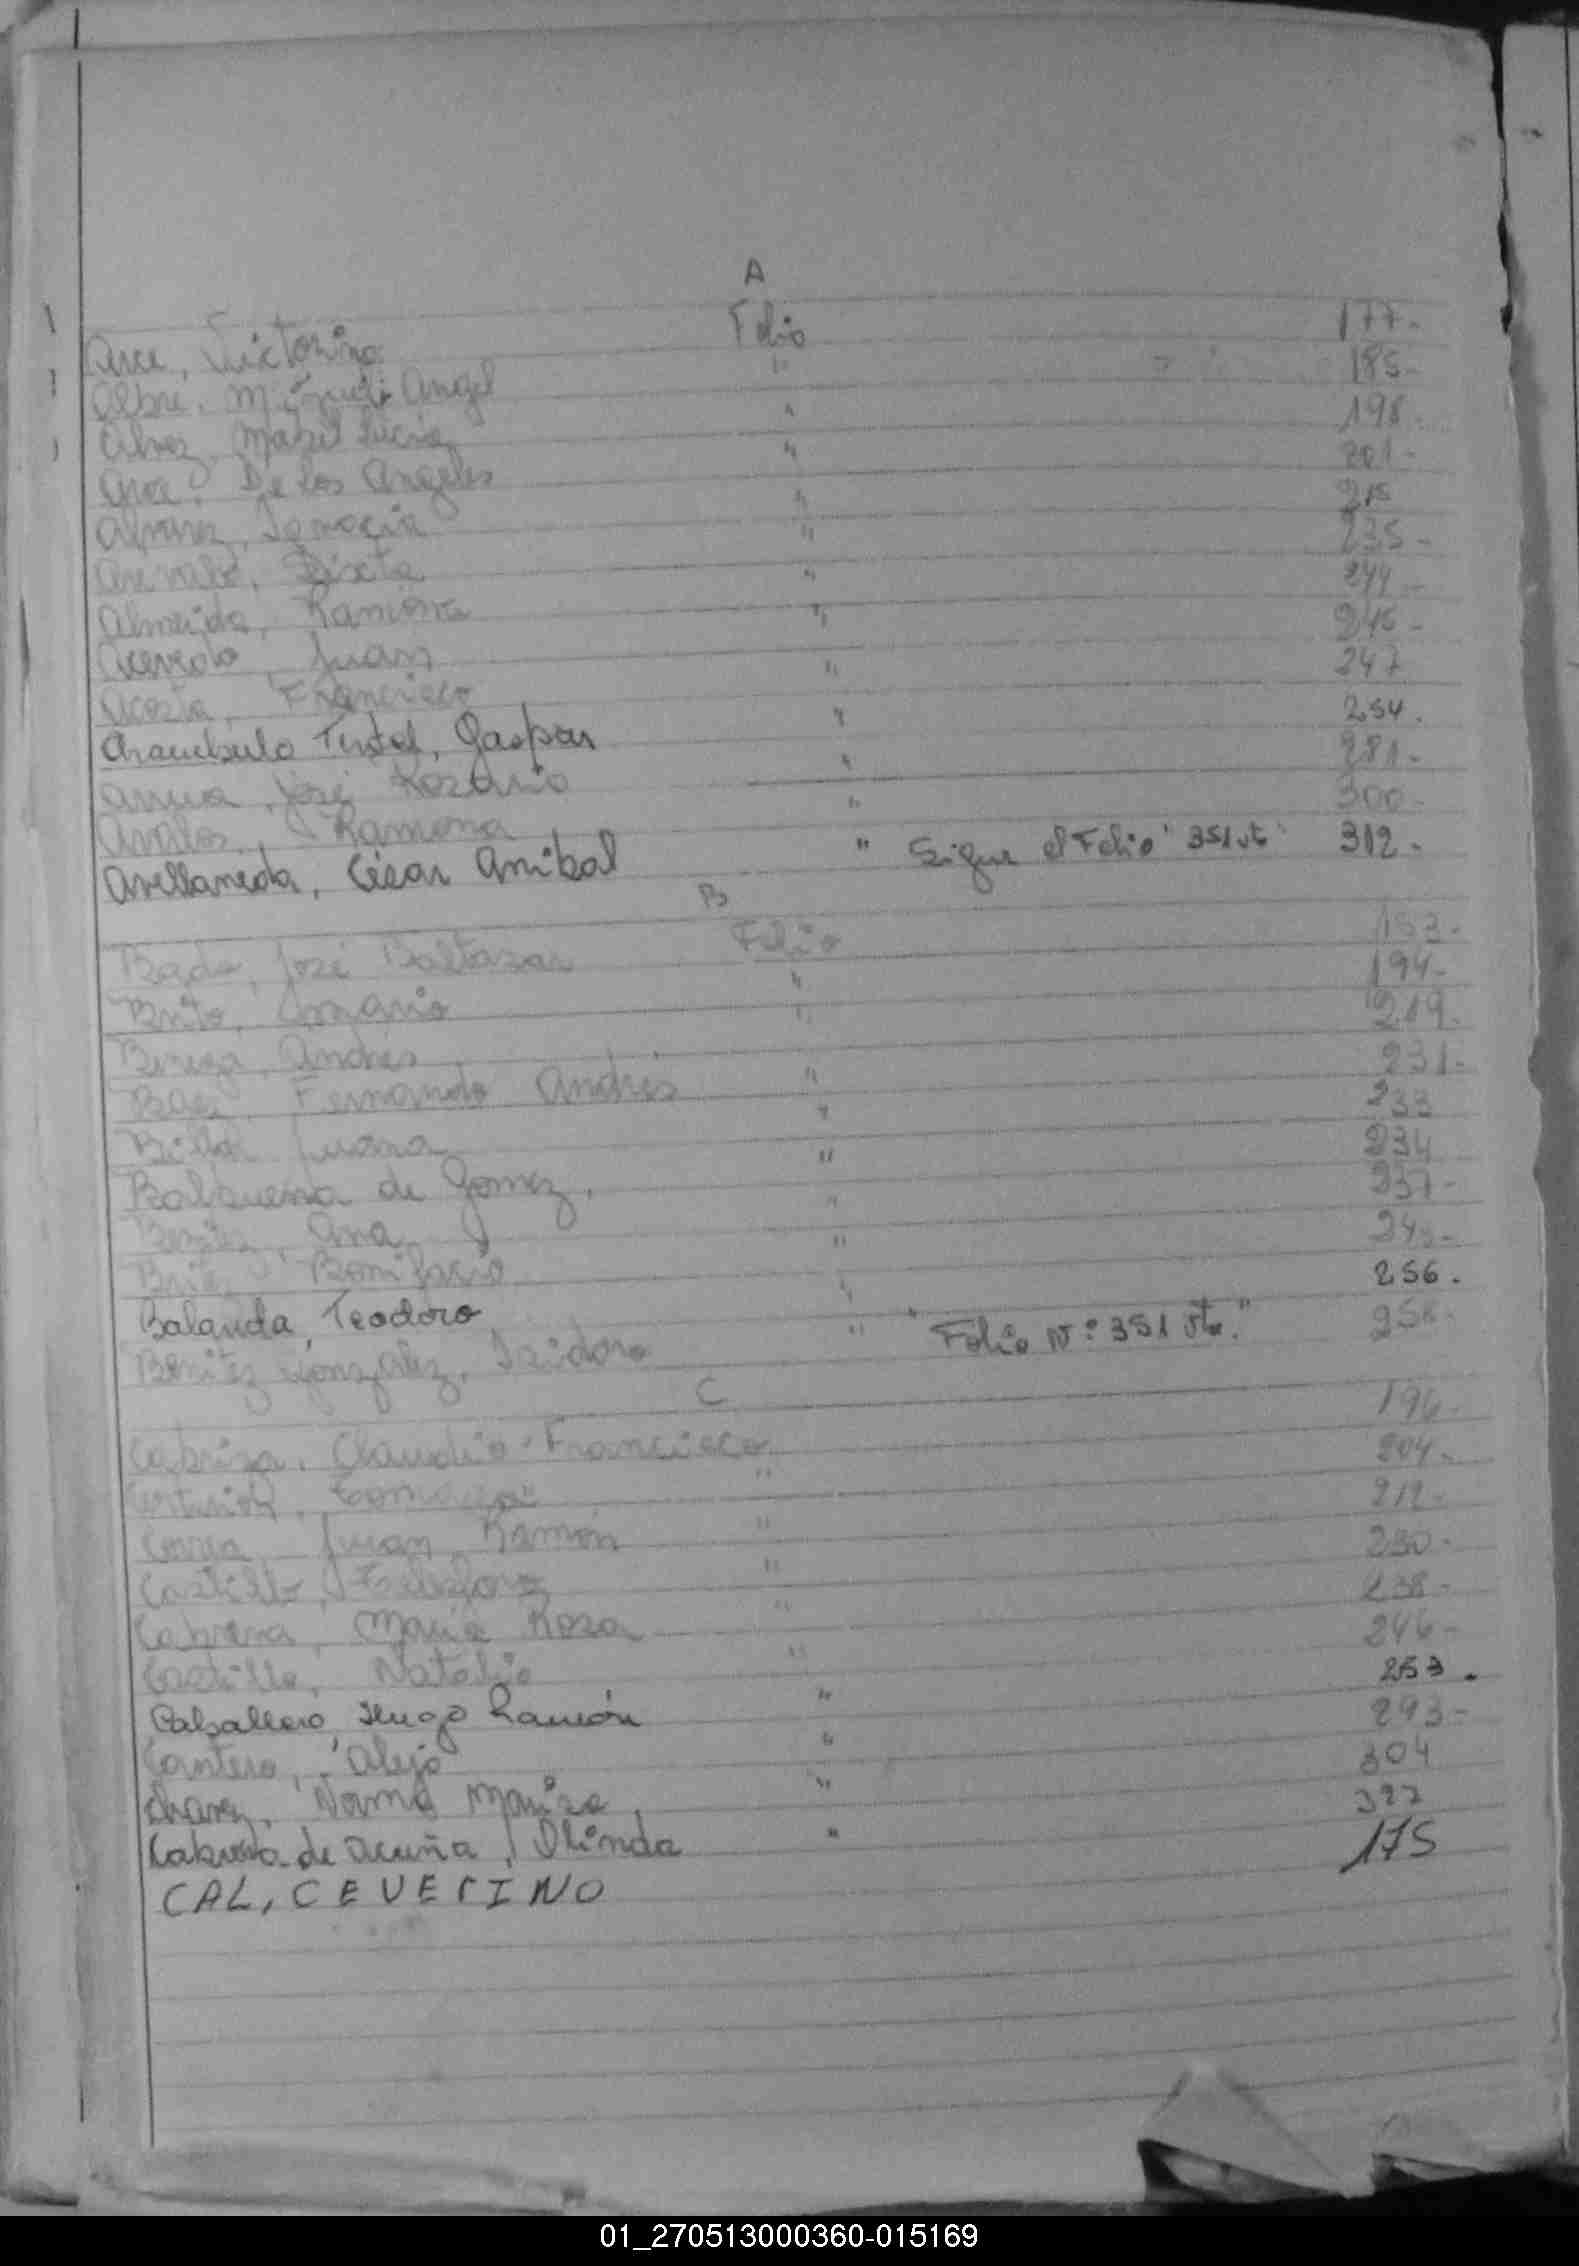 A
Arce, Victorino Folio 177.-
Miguel Angel " 185.-
Alvez, Lucia " 198.-
De los Angeles " 201.-
Alvarez, Ignacia " 215
Arevalo, Sixta " 235.-
Almeida, Ramona " 244.-
Acevedo, Juan " 245.-
Acosta, Francisco " 247
Arambulo Gaspar " 254.
José Rosario " 281.-
Avalos, Ramona " 300.-
Avellaneda, César Anibal " Sigue el Folio "351 vt" 312.-
B
José Baltazar Folio 153.-
Brito, " 194.-
Andrés " 219.-
Baez, Fernando Andrés " 231.-
Juana " 233
Balbuena de Gomez, " 234
Benitez, Ana " 237.-
Britez, Bonifacio " 245.-
Balanda, Teodoro " 256.
Benitez Gonzalez, Isidoro " "Folio Nº 351 vta." 258.-
C
Cabriza, Claudio Francisco 196.-
" 204.-
Correa, Juan Ramón " 212.-
Castillo, " 230.-
Cabrera, María Rosa " 238.-
Castillo, Natalio " 246.-
Caballero, Hugo Ramón " 253.
Cantero, Alejo " 293.-
Chavez, Norma Mariza " 304
Cabrera de Acuña, Olinda " 327
CAL, CEVERINO 175
01_270513000360-015169